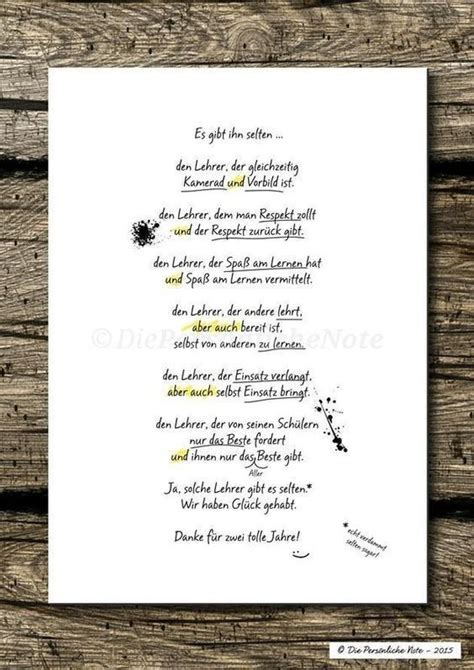 Es gibt ihn selten ...
den Lehrer, der gleichzeitig
Kamerad und Vorbild ist.
den Lehrer, dem man Respekt zollt
und der Respekt zurück gibt.
den Lehrer, der Spaß am Lernen hat
und Spaß am Lernen vermittelt.
den Lehrer, der andere lehrt,
aber auch bereit ist,
selbst von anderen zu lernen.
©DiePersönlicheNote
den Lehrer, der Einsatz verlangt,
aber auch selbst Einsatz bringt.
den Lehrer, der von seinen Schülern
nur das Beste fordert
und ihnen nur das Beste gibt.
Aller
Ja, solche Lehrer gibt es selten.*
Wir haben Glück gehabt.
Danke für zwei tolle Jahre!
:)
* echt verdammt
selten sogar!
© Die Persönliche Note - 2015